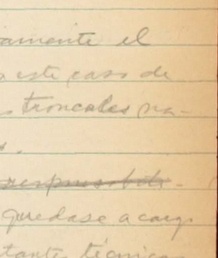 amente el
a este caso de
s troncales na-
s.
responsabili-
quedase a cargo
tante técnico